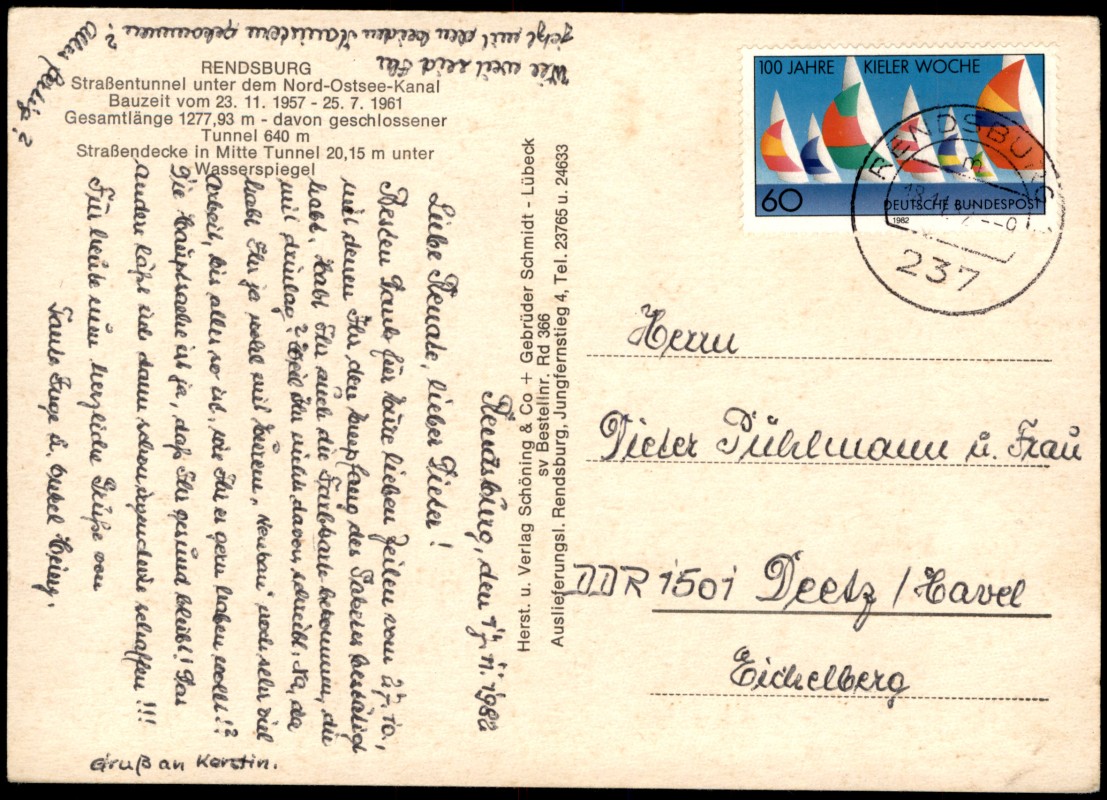 RENDSBURG
Straßentunnel unter dem Nord-Ostsee-Kanal
Bauzeit vom 23. 11. 1957 - 25. 7. 1961
Gesamtlänge 1277,93 m - davon geschlossener
Tunnel 640 m
Straßendecke in Mitte Tunnel 20,15 m unter
Wasserspiegel
Rendsburg, den 17. 11. 1982
Liebe Renate, lieber Dieter!
Besten Dank für Eure lieben Zeilen vom 27. 10.,
mit denen Ihr den Empfang des Paketes bestätigt
habt. Habt Ihr auch die Farbkarte bekommen, die
mit drinlag? Weil Ihr nichts davon schreibt. Na, da
habt Ihr ja wohl mit Eurem "Neubau" noch sehr viel
Arbeit, bis alles so ist, wie Ihr es gern haben wollt!?
Die Hauptsache ist ja, daß Ihr gesund bleibt! Das
andere läßt sich dann schon irgendwie schaffen!!!
Für heute nun herzliche Grüße von
Tante Inge u. Onkel Heinz.
Wie weit seid Ihr
jetzt mit den beiden gekommen?
Alles fertig?
Gruß an Kerstin.
Herst. u. Verlag Schöning & Co + Gebrüder Schmidt - Lübeck
sv Bestellnr. Rd 366
Auslieferungsl. Rendsburg, Jungfernstieg 4, Tel. 23765 u. 24633
100 JAHRE KIELER WOCHE
60 DEUTSCHE BUNDESPOST
1982
RENDSBURG
237
Herrn
Dieter Pühlmann u. Frau
DDR 1501 Deetz / Havel
Eichelberg